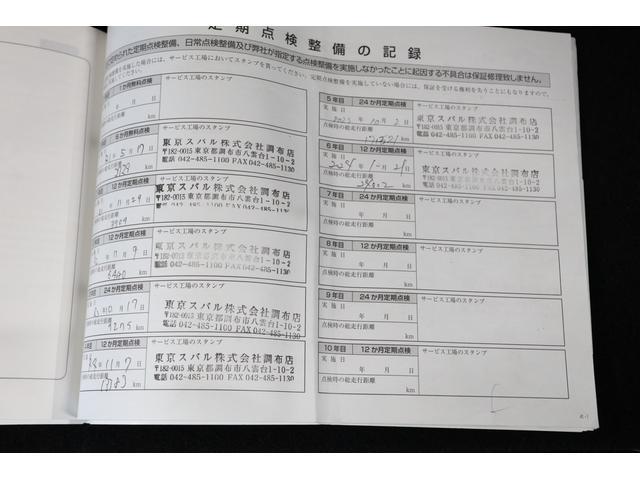 定期点検整備の記録
られた定期点検整備、日常点検整備及び弊社が指定する点検整備を実施しなかったことに起因する不具合は保証修理致しません。
サービス工場においてスタンプを貰ってください。定期点検整備を実施していない場合には、保証を受ける権利を失うことにもなりますので、
1か月無料点検 サービス工場のスタンプ
年 月 日
km
6か月無料点検 サービス工場のスタンプ
5月
東京スバル株式会社調布店
〒182-0015 東京都調布市八雲台1-10-2
電話 042-485-1100 FAX 042-485-1130
km
12か月定期点検 サービス工場のスタンプ
11月29日
東京スバル株式会社調布店
〒182-0015 東京都調布市八雲台1-10-2
電話 042-485-1100 FAX 042-485-1130
km
12か月定期点検 サービス工場のスタンプ
東京スバル株式会社調布店
〒182-0015 東京都調布市八雲台1-10-2
電話 042-485-1100 FAX 042-485-1130
km
24か月定期点検 サービス工場のスタンプ
10月17日
東京スバル株式会社調布店
〒182-0015 東京都調布市八雲台1-10-2
電話 042-485-1100 FAX 042-485-1130
9275 km
12か月定期点検 サービス工場のスタンプ
年11月7日
東京スバル株式会社調布店
〒182-0015 東京都調布市八雲台1-10-2
電話 042-485-1100 FAX 042-485-1130
km
5年目 24か月定期点検 サービス工場のスタンプ
実施日
2023年10月2日
点検時の総走行距離
km
東京スバル株式会社調布店
〒182-0015 東京都調布市八雲台1-10-2
電話 042-485-1100 FAX 042-485-1130
6年目 12か月定期点検 サービス工場のスタンプ
実施日
点検時の総走行距離
km
東京スバル株式会社調布店
〒182-0015 東京都調布市八雲台1-10-2
電話 042-485-1100 FAX 042-485-1130
7年目 24か月定期点検 サービス工場のスタンプ
実施日
年 月 日
点検時の総走行距離
km
8年目 12か月定期点検 サービス工場のスタンプ
実施日
年 月 日
点検時の総走行距離
km
9年目 24か月定期点検 サービス工場のスタンプ
実施日
年 月 日
点検時の総走行距離
km
10年目 12か月定期点検 サービス工場のスタンプ
実施日
年 月 日
点検時の総走行距離
km